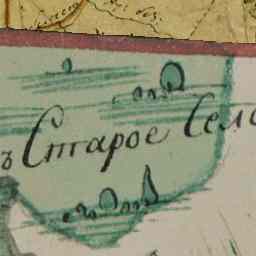 ъ Старое Село